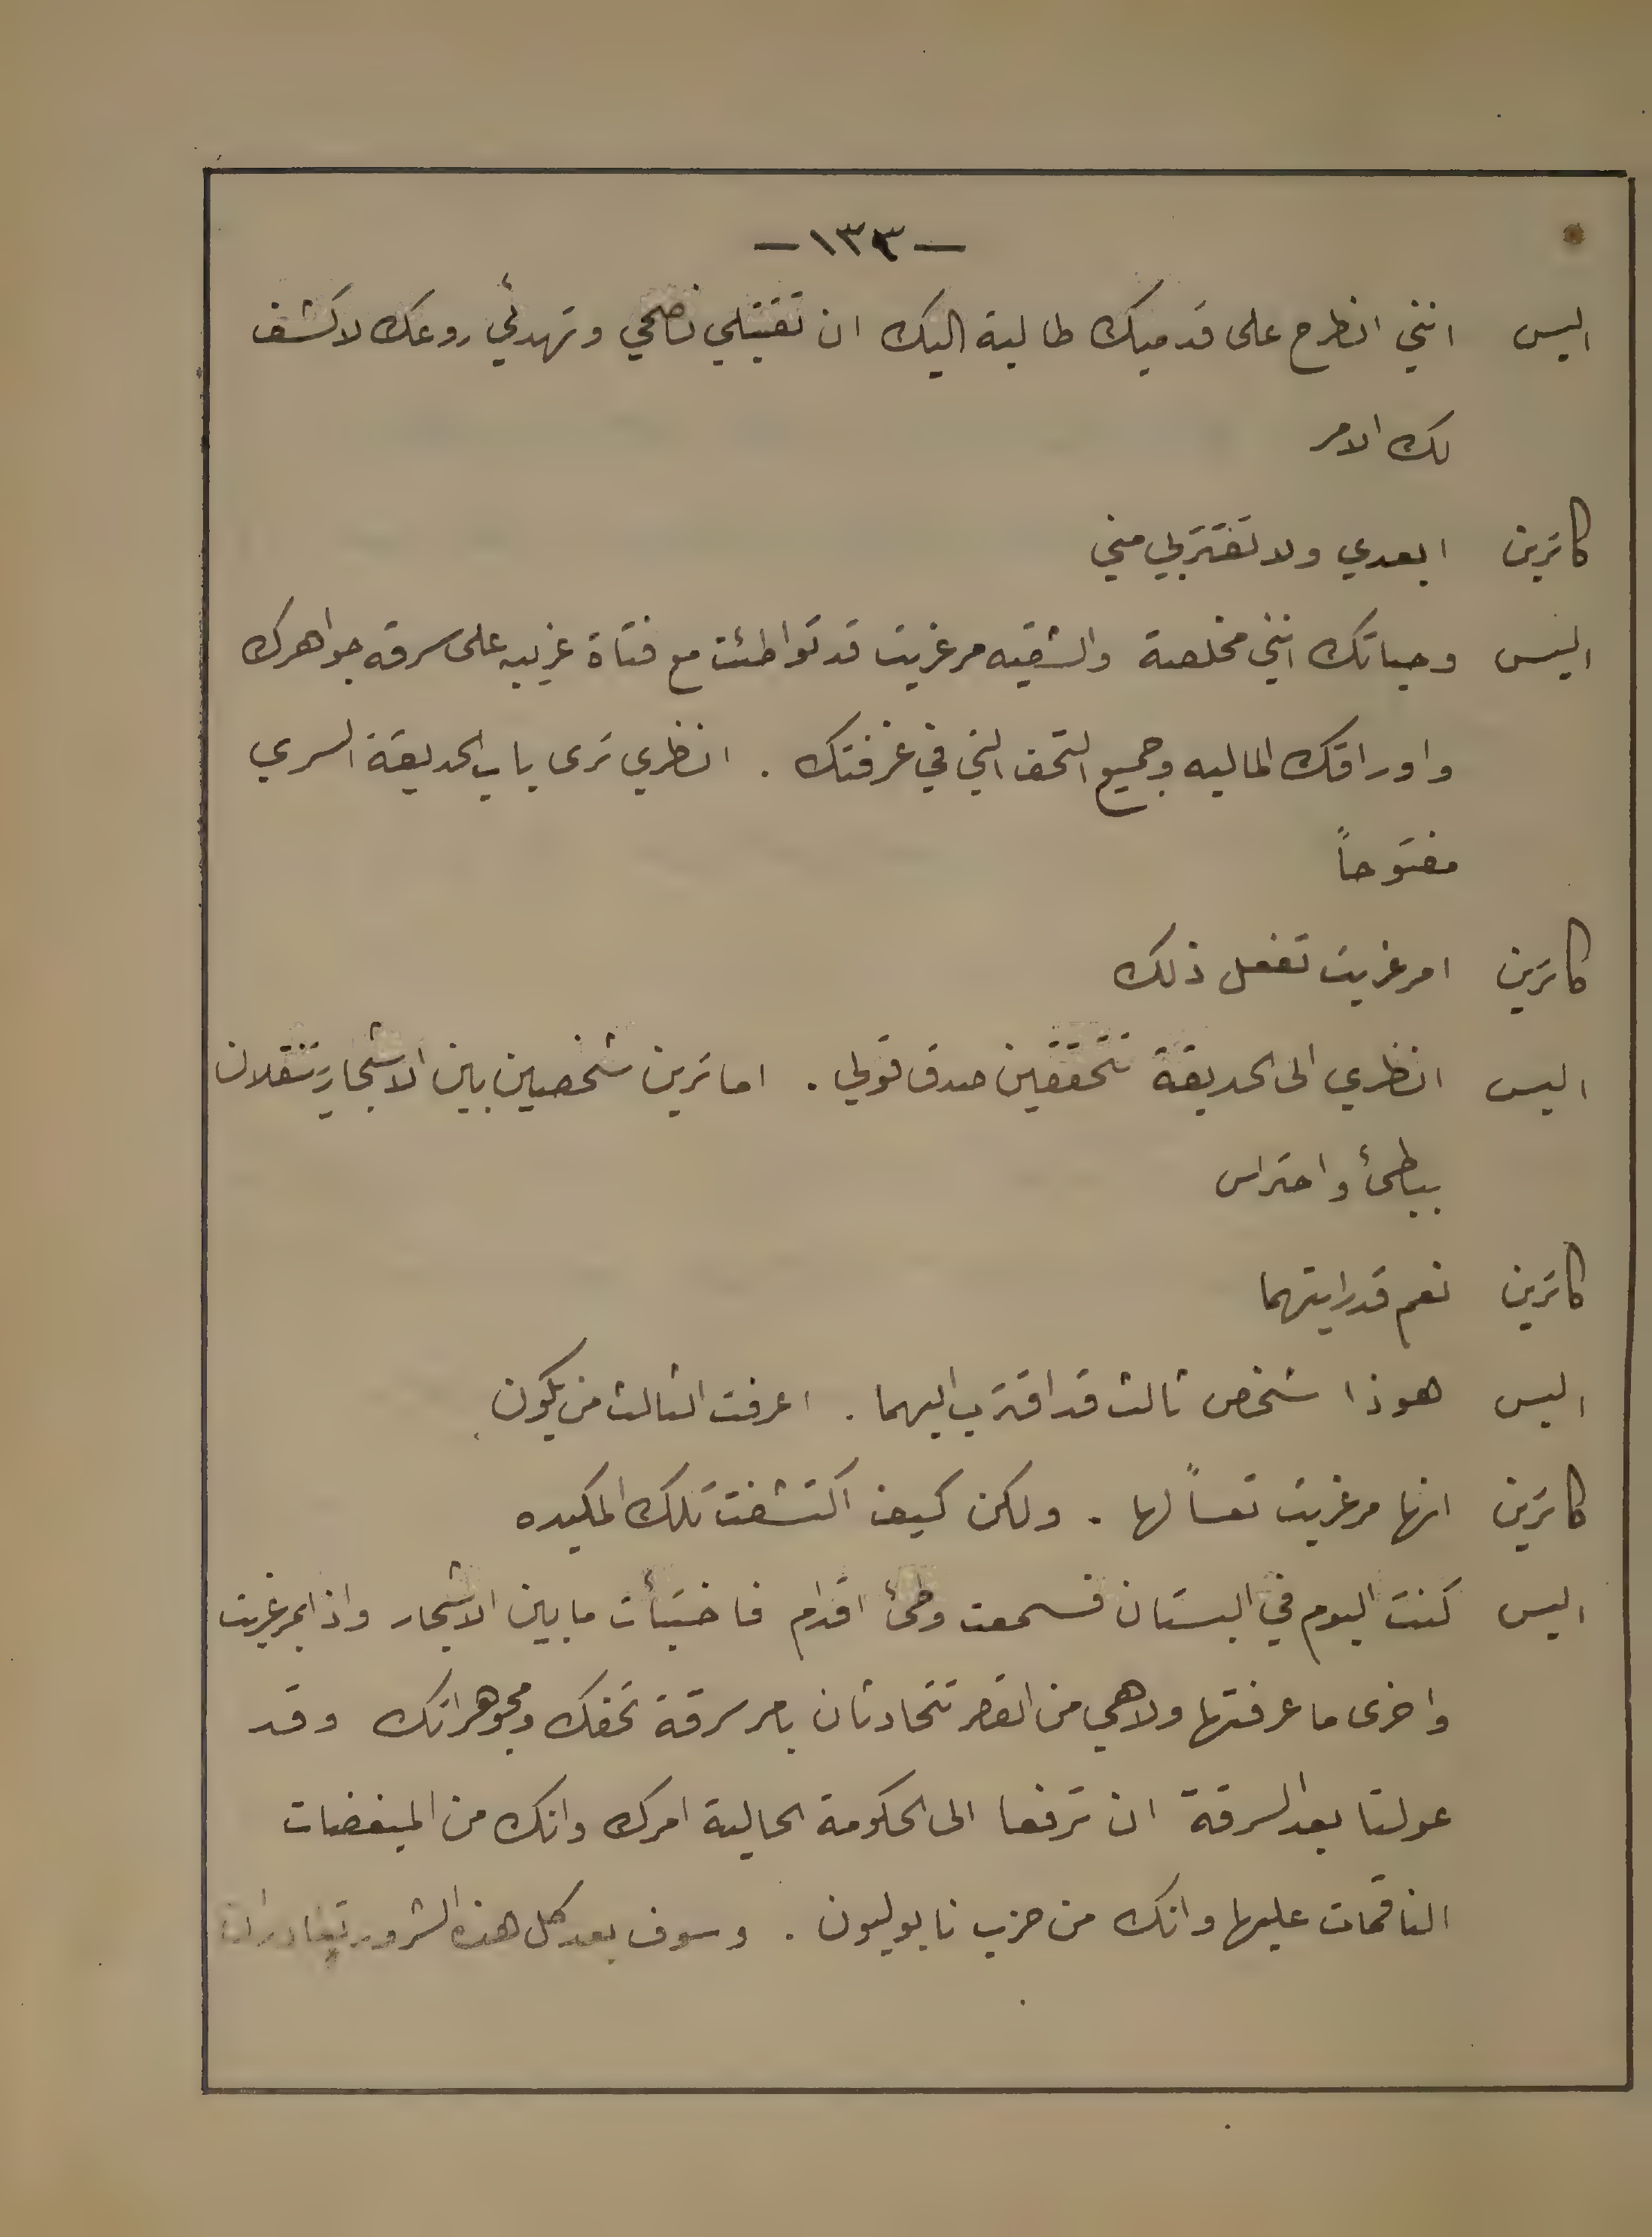 — ١٣٣ —
اليس انني انطرح على قدميك طالبة اليك ان تقتبلي نصحي وتهدئي روعك لاكشف
لك الامر
كاترين ابعدي ولا تقتربي مني
اليس وحياتك انني مخلصة والشقيه مرغريت قد تواطئت مع فتاة غريبه على سرقه جواهرك
واوراقك الماليه وجميع التحف التي في غرفتك . انظري ترى باب الحديقة السري
مفتوحاً
كاترين امرغريت تفعل ذلك
اليس انظري الى الحديقة تتحققين صدق قولي . اما ترين شخصين بين الاشجار يتنقلان
ببطئ واحتراس
كاترين نعم قد رايتهما
اليس هوذا شخص ثالث قد اقترب اليهما . اعرفت الثالث من يكون
كاترين انها مرغريت تعساً لها . ولكن كيف اكتشفت تلك المكيده
اليس كنت اليوم في البستان فسمعت وطئ اقدام فاختبأت ما بين الاشجار واذا بمرغريت
واخرى ما عرفتها ولا هي من القصر تتحادثان بامر سرقة تحفك ومجوهراتك وقد
عولتا بعد السرقة ان ترفعا الى الحكومة الحالية امرك وانك من المبغضات
الناقمات عليها وانك من حزب نابوليون . وسوف بعد كل هذه الشرور تغادران